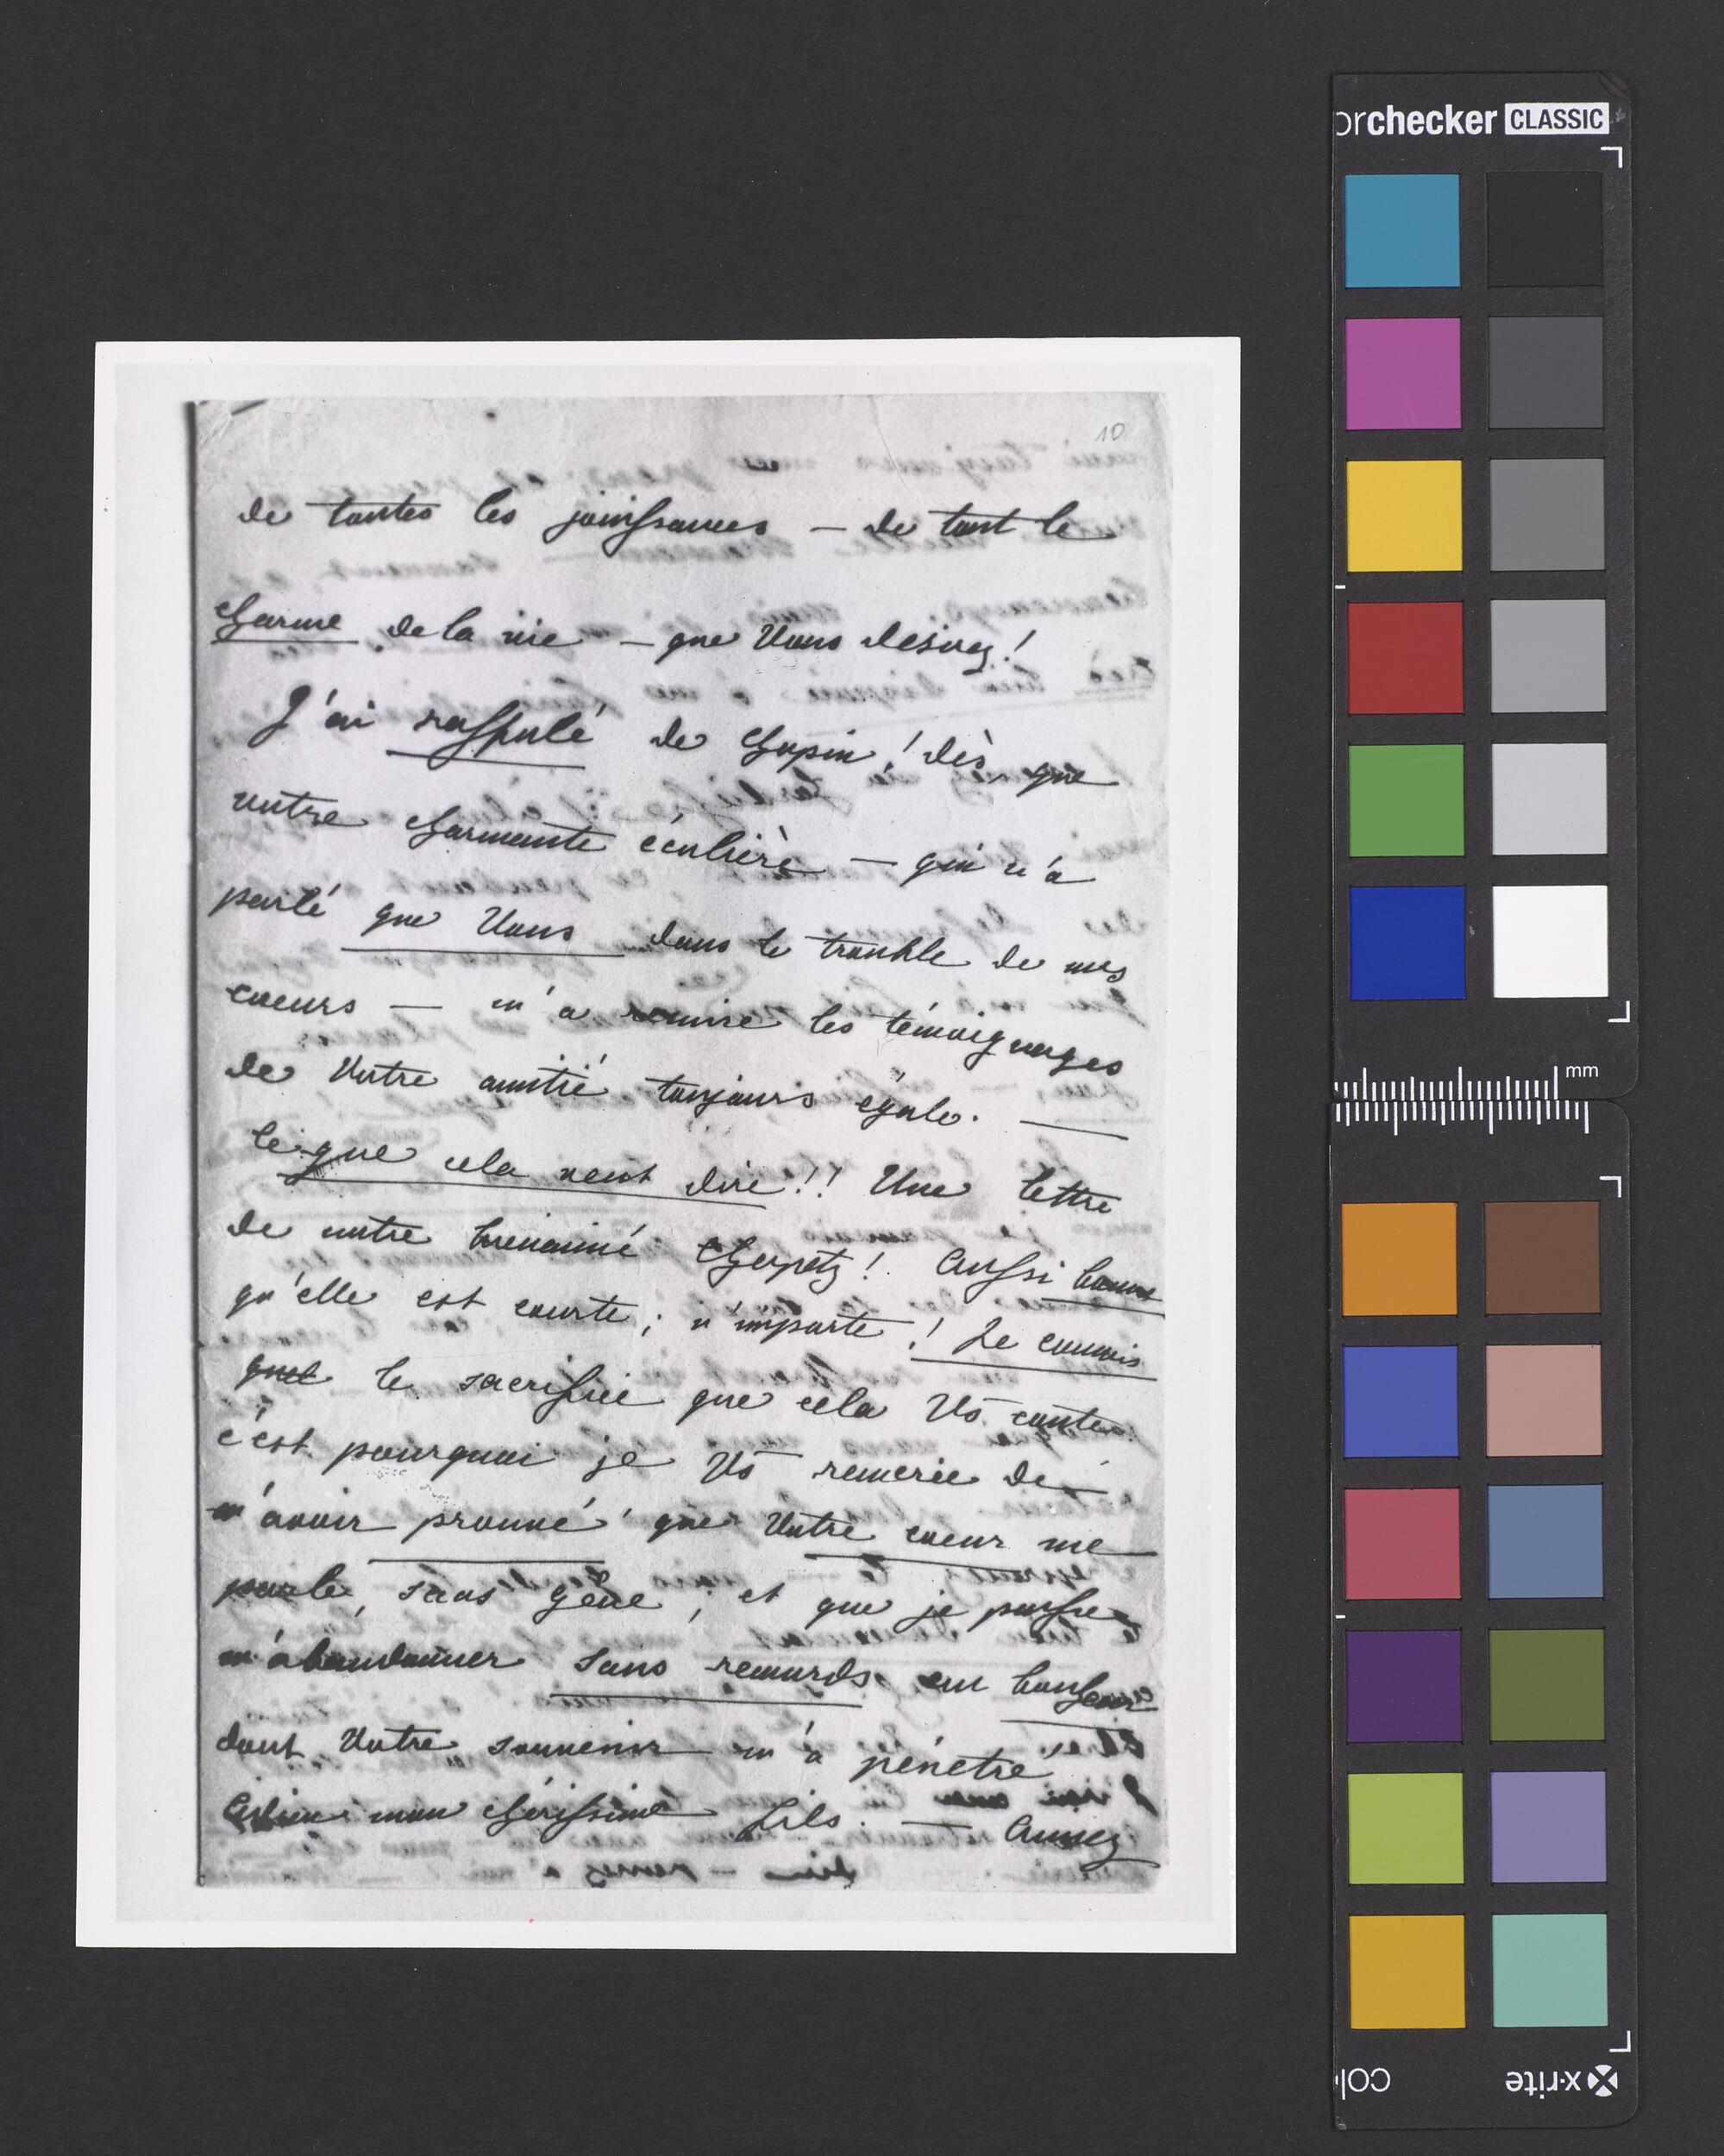 10
de toutes les jouissances — de tout le
charme de la vie — que Vous desirez!
J'ai raffolé de Chopin! dès que
votre charmante écolière — qui n'a
parlé que Vous dans le trouble de mes
coeurs — m'a les témoignages
de Votre amitié toujours égale. —
Ce que cela veut dire!! Une lettre
de notre bienaimé! Aussi bonne
qu'elle est courte; n'importe! Je connais
quel le sacrifice que cela Vs coute:
c'est pourquoi je Vs remercie de
m'avoir prouvé que Votre coeur me
parle, sans gêne; et que je puisse
m'abandonner sans remords au bonheur
dont Votre souvenir m'a pénetré!
mon chérissime fils. — Aimez
orchecker CLASSIC
mm
x-rite
col